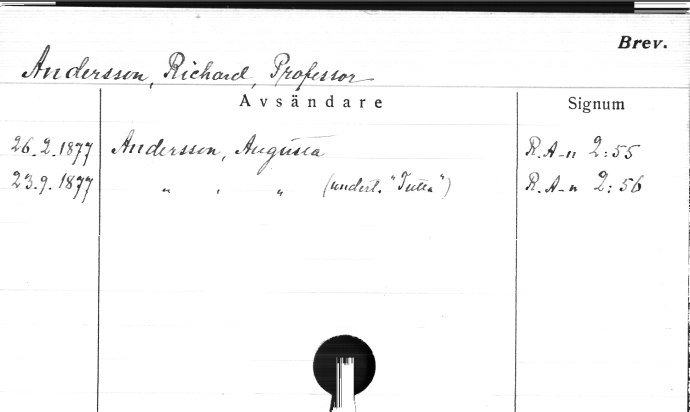 Brev.
Andersson, Richard, Professor
Avsändare Signum
26.2.1877 Andersson, Augusta R.A-n 2:55
23.9.1877 " , " (undert. "Tutta") R.A-n 2:56